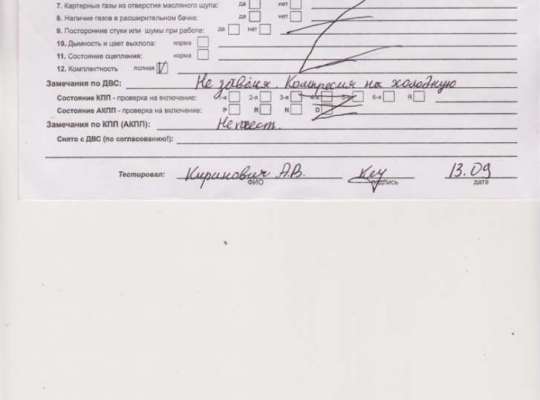 7. Картерные газы из отверстия масляного щупа: да нет
8. Наличие газов в расширительном бачке: да нет
9. Посторонние стуки или шумы при работе: да нет
10. Дымность и цвет выхлопа: норма
11. Состояние сцепления: норма
12. Комплектность полная
Замечания по ДВС: Не завёлся. Компрессия на холодную
Состояние КПП - проверка на включение: 1-я 2-я 3-я 4-я 5-я 6-я R
Состояние АКПП - проверка на включение: P R N D
Замечания по КПП (АКПП): Не тест.
Снято с ДВС (по согласованию!):
Тестировал: Киранович А.В. 13.09
ФИО подпись дата